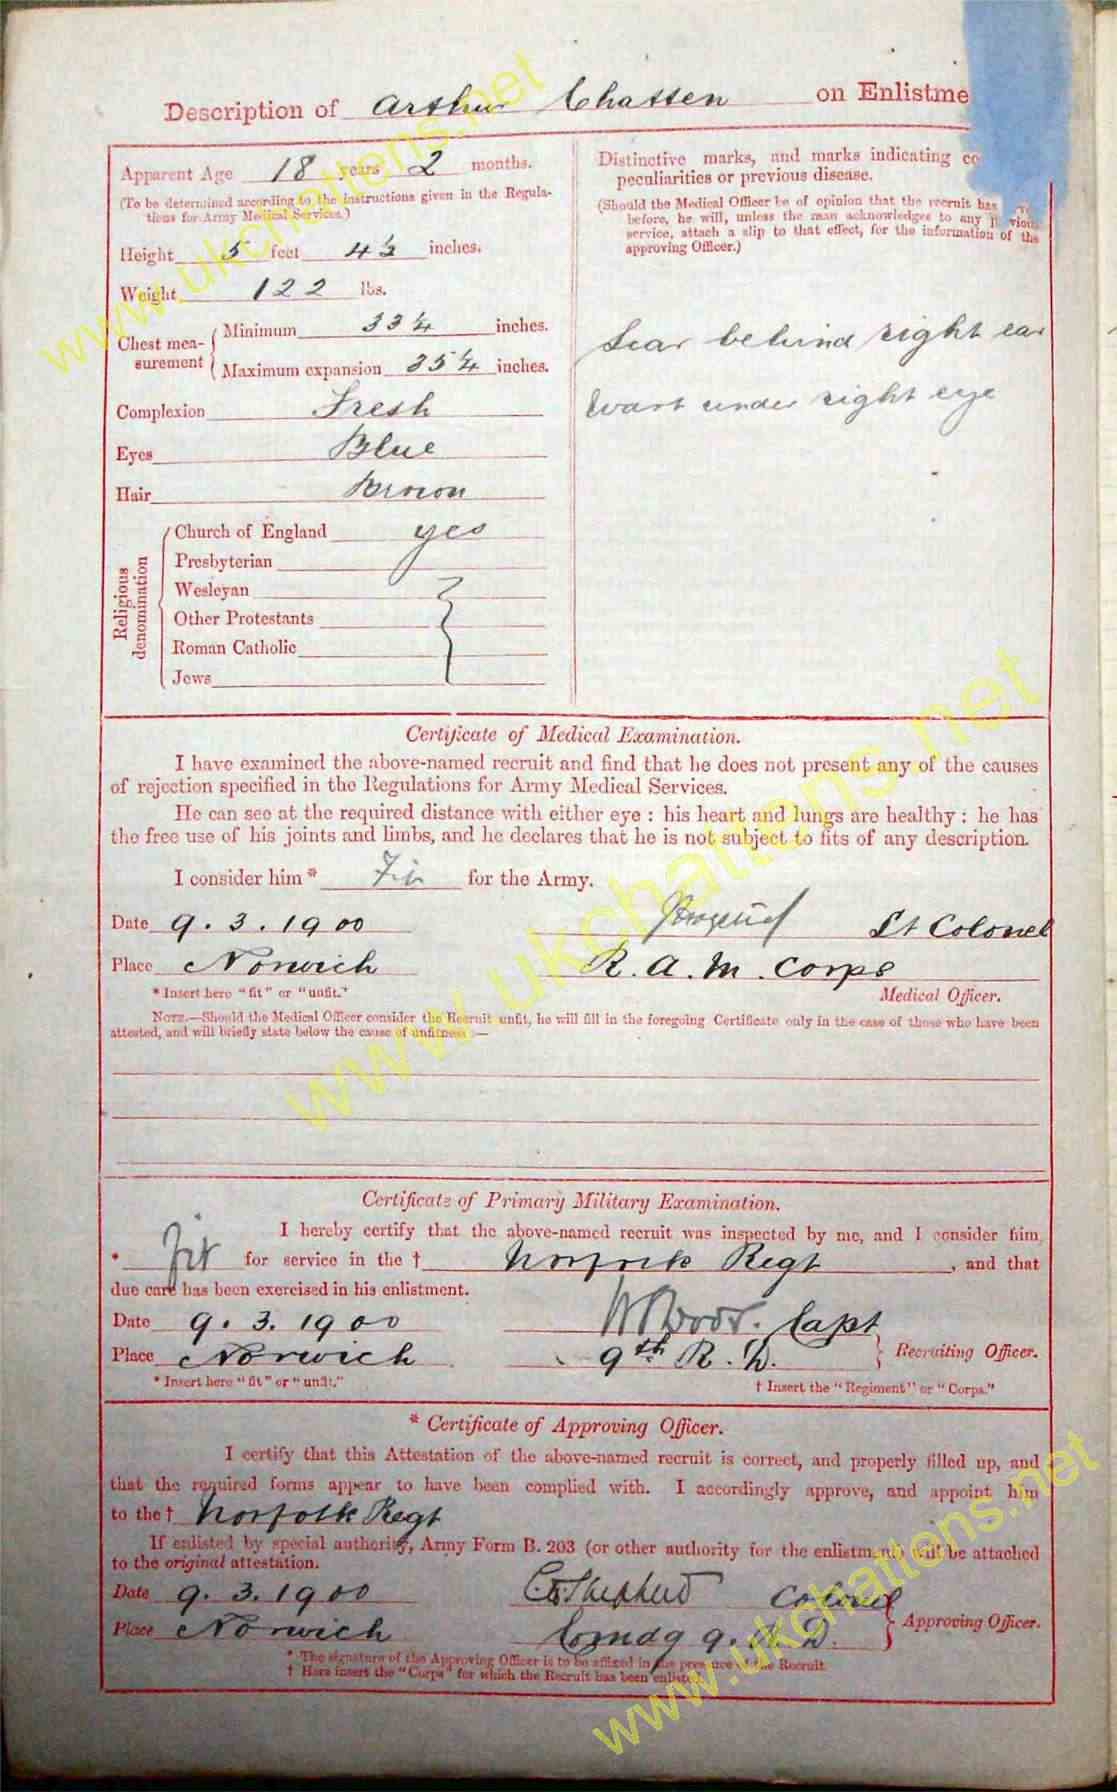 Description of Arthur Chatten on Enlistme
Apparent Age 18 years 2 months.
(To be determined according to the instructions given in the Regula-
tions for Army Medical Services.)
Height 5 feet 4½ inches.
Weight 122 lbs.
Chest mea-
surement
Minimum 33¼ inches.
Maximum expansion 35¼ inches.
Complexion Fresh
Eyes Blue
Hair Brown
Religious
denomination
Church of England yes
Presbyterian
Wesleyan
Other Protestants
Roman Catholic
Jews
Distinctive marks, and marks indicating co
peculiarities or previous disease.
(Should the Medical Officer be of opinion that the recruit has
before, he will, unless the man acknowledges to any
service, attach a slip to that effect, for the information of the
approving Officer.)
Scar behind right ear
Wart under right eye
Certificate of Medical Examination.
I have examined the above-named recruit and find that he does not present any of the causes
of rejection specified in the Regulations for Army Medical Services.
He can see at the required distance with either eye : his heart and lungs are healthy : he has
the free use of his joints and limbs, and he declares that he is not subject to fits of any description.
I consider him * Fit for the Army.
Date 9.3.1900 Lt Colonel
Place Norwich R.A.M. Corps
* Insert here "fit" or "unfit."
Medical Officer.
NOTE.—Should the Medical Officer consider the Recruit unfit, he will fill in the foregoing Certificate only in the case of those who have been
attested, and will briefly state below the cause of unfitness :—
Certificate of Primary Military Examination.
I hereby certify that the above-named recruit was inspected by me, and I consider him,
* Fit for service in the † Norfolk Regt, and that
due care has been exercised in his enlistment.
Date 9.3.1900 Capt
Place Norwich 9th R.D. Recruiting Officer.
* Insert here "fit" or "unfit."
† Insert the "Regiment" or "Corps."
* Certificate of Approving Officer.
I certify that this Attestation of the above-named recruit is correct, and properly filled up, and
that the required forms appear to have been complied with. I accordingly approve, and appoint him
to the † Norfolk Regt
If enlisted by special authority, Army Form B. 203 (or other authority for the enlistment) will be attached
to the original attestation.
Date 9.3.1900 Shepherd Colonel
Place Norwich Comdg 9.R.D. Approving Officer.
* The signature of the Approving Officer is to be affixed in the presence of the Recruit
† Here insert the "Corps" for which the Recruit has been enlisted.
www.ukchattens.net
www.ukchattens.net
www.ukchattens.net